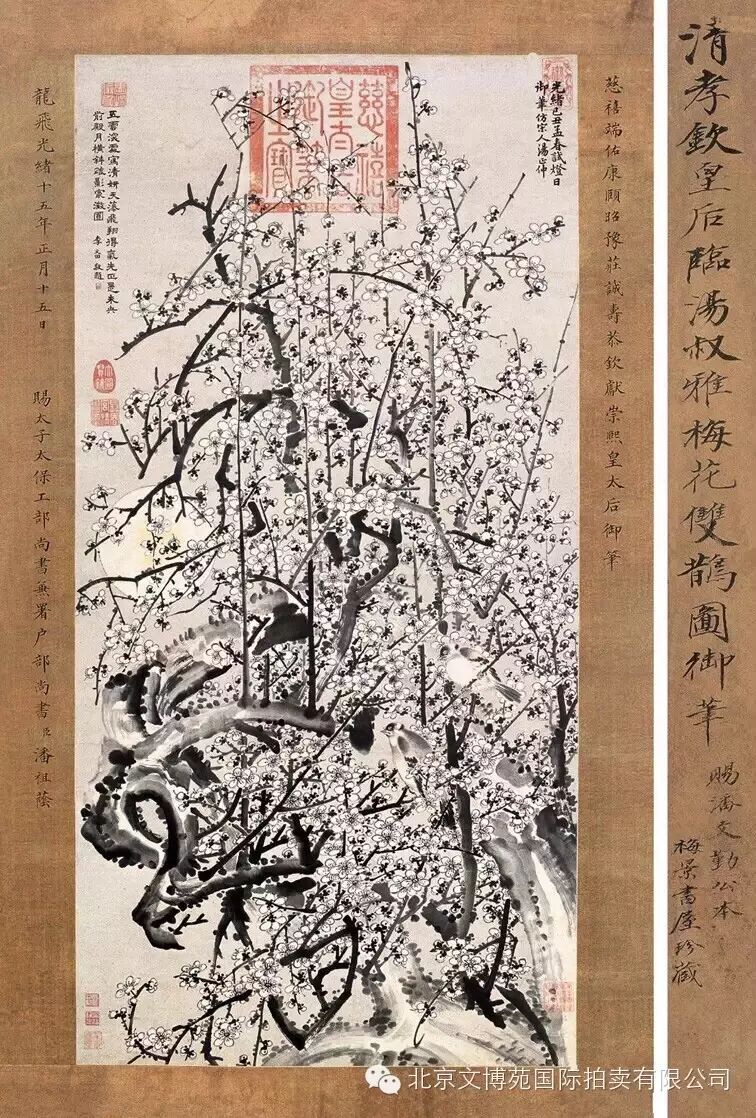 清孝欽皇后臨湯叔雅梅花雙鵲圖御筆
賜潘文勤公本
梅景書屋珍藏
慈禧端佑康頤昭豫莊誠壽恭欽獻崇熙皇太后御筆
光緒己丑孟春試燈日
御筆仿宋人湯正仲
慈禧皇太后御筆之寶
五雲深 寫清妍天 飛翔得氣先
前殿月橫斜疏影寫澂圓
龍飛光緒十五年正月十五日
賜太子太保工部尚書兼署户部尚書臣潘祖蔭
北京文博苑国际拍卖有限公司